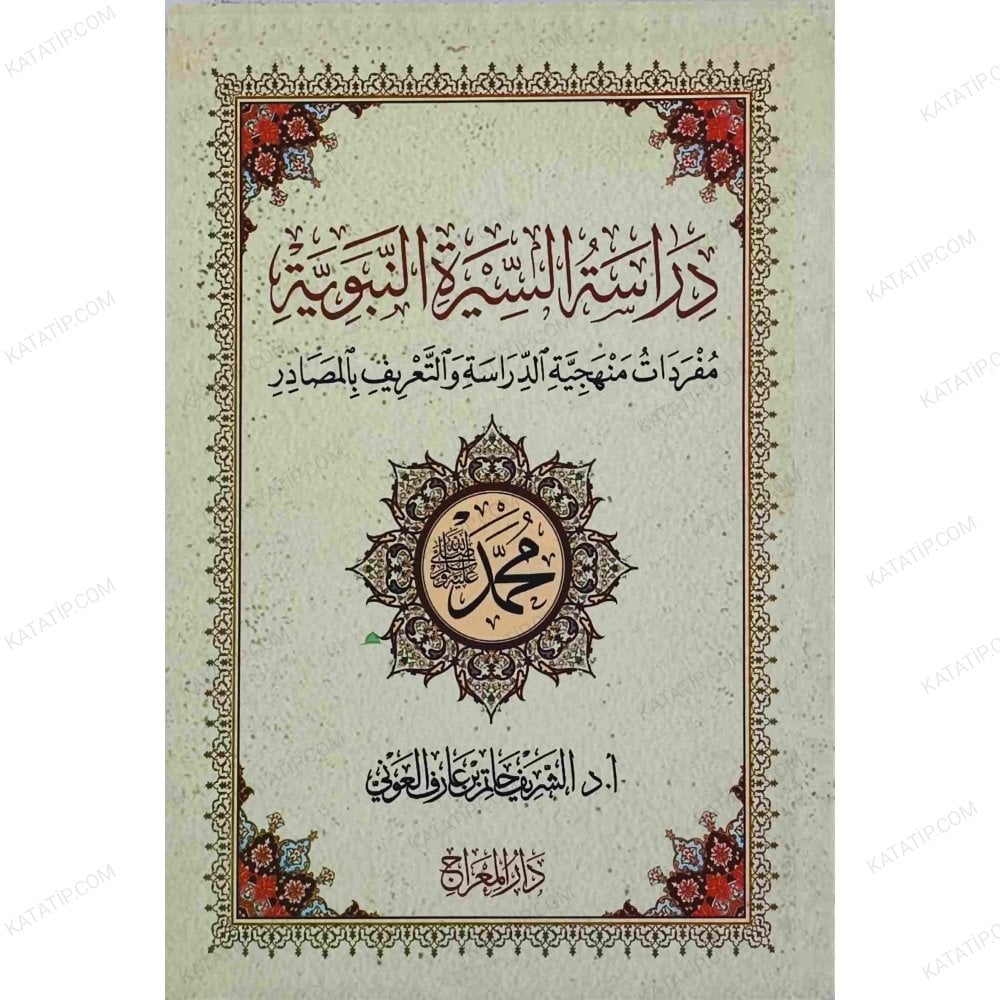 دِرَاسَةُ السِّيرَةِ النَّبَوِيَّةِ
مُفْرَدَاتُ مَنْهَجِيَّةِ ٱلدِّرَاسَةِ وَٱلتَّعْرِيفِ بِٱلمَصَادِرِ
مُحَمَّد ﷺ
أ.د الشَّرِيفُ حَاتِم بْن عَارِف العَوْنِي
دَارُ المِعْرَاج
KATATİP.COM